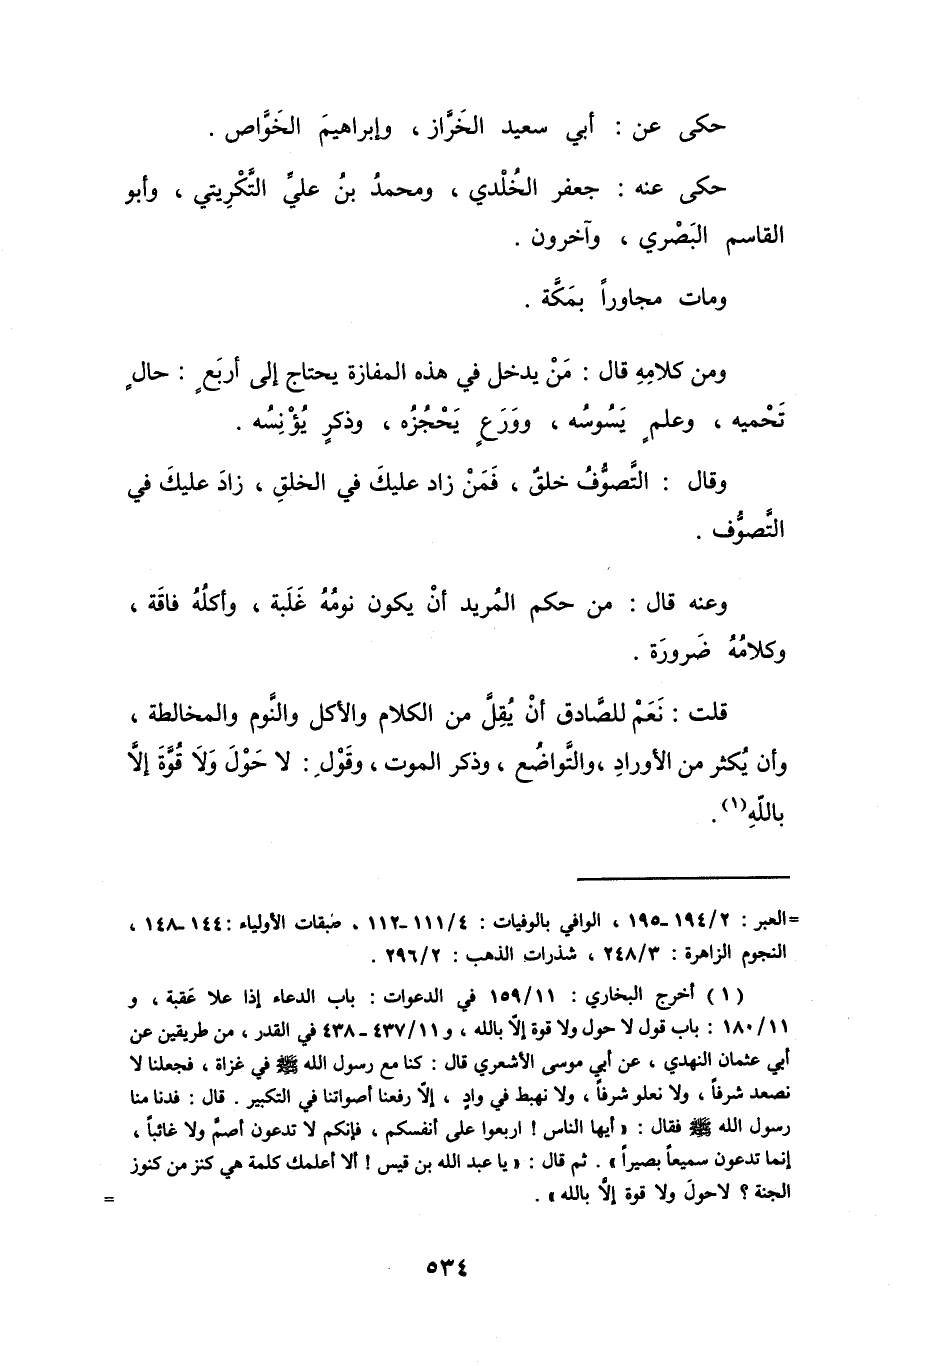 حكى عن : أبي سعيد الخَرَّاز ، وإبراهيمَ الخَوَّاص .
حكى عنه : جعفر الخُلْدي ، ومحمدُ بنُ عليٍّ التَّكْرِيتي ، وأبو
القاسم البَصْري ، وآخرون .
ومات مجاوراً بمَكَّة .
ومن كلامِهِ قال : مَنْ يدخل في هذه المفازة يحتاج إلى أربَعٍ : حالٍ
تَحْميه ، وعلمٍ يَسُوسُه ، ووَرَعٍ يَحْجُزُه ، وذكرٍ يُؤْنِسُه .
وقال : التَّصوُّفُ خلقٌ ، فَمَنْ زاد عليكَ في الخلقِ ، زادَ عليكَ في
التَّصوُّف .
وعنه قال : من حكم المُريد أنْ يكون نومُهُ غَلَبة ، وأكلُهُ فاقَة ،
وكلامُهُ ضَرورَة .
قلت : نَعَمْ للصَّادق أنْ يُقِلَّ من الكلام والأكل والنَّوم والمخالطة ،
وأن يُكثر من الأورادِ ،والتَّواضُع ، وذكر الموت ، وقَوْلِ : لا حَوْلَ وَلَا قُوَّةَ إلَّا
باللّهِ(١).
=العبر : ١٩٤/٢ـ١٩٥ ، الوافي بالوفيات : ١١١/٤ـ١١٢ . طبقات الأولياء :١٤٤ـ١٤٨ ،
النجوم الزاهرة : ٢٤٨/٣ ، شذرات الذهب : ٢٩٦/٢ .
(١) أخرج البخاري : ١٥٩/١١ في الدعوات : باب الدعاء إذا علا عَقبة ، و
١٨٠/١١ : باب قول لا حول ولا قوة إلّا بالله ، و٤٣٧/١١ـ ٤٣٨ في القدر ، من طريقين عن
أبي عثمان النهدي ، عن أبي موسى الأشعري قال : كنا مع رسول الله ﷺ في غزاة ، فجعلنا لا
نصعد شرفاً ، ولا نعلو شرفاً ، ولا نهبط في وادٍ ، إلّا رفعنا أصواتنا في التكبير . قال : فدنا منا
رسول الله ﷺ فقال : « أيها الناس ! اربعوا على أنفسكم ، فإنكم لا تدعون أصمَّ ولا غائباً ،
إنما تدعون سميعاً بصيراً » . ثم قال : « يا عبد الله بن قيس ! ألا أعلمك كلمة هي كنز من كنوز
الجنة ؟ لاحولَ ولا قوة إلّا بالله » . =
٥٣٤